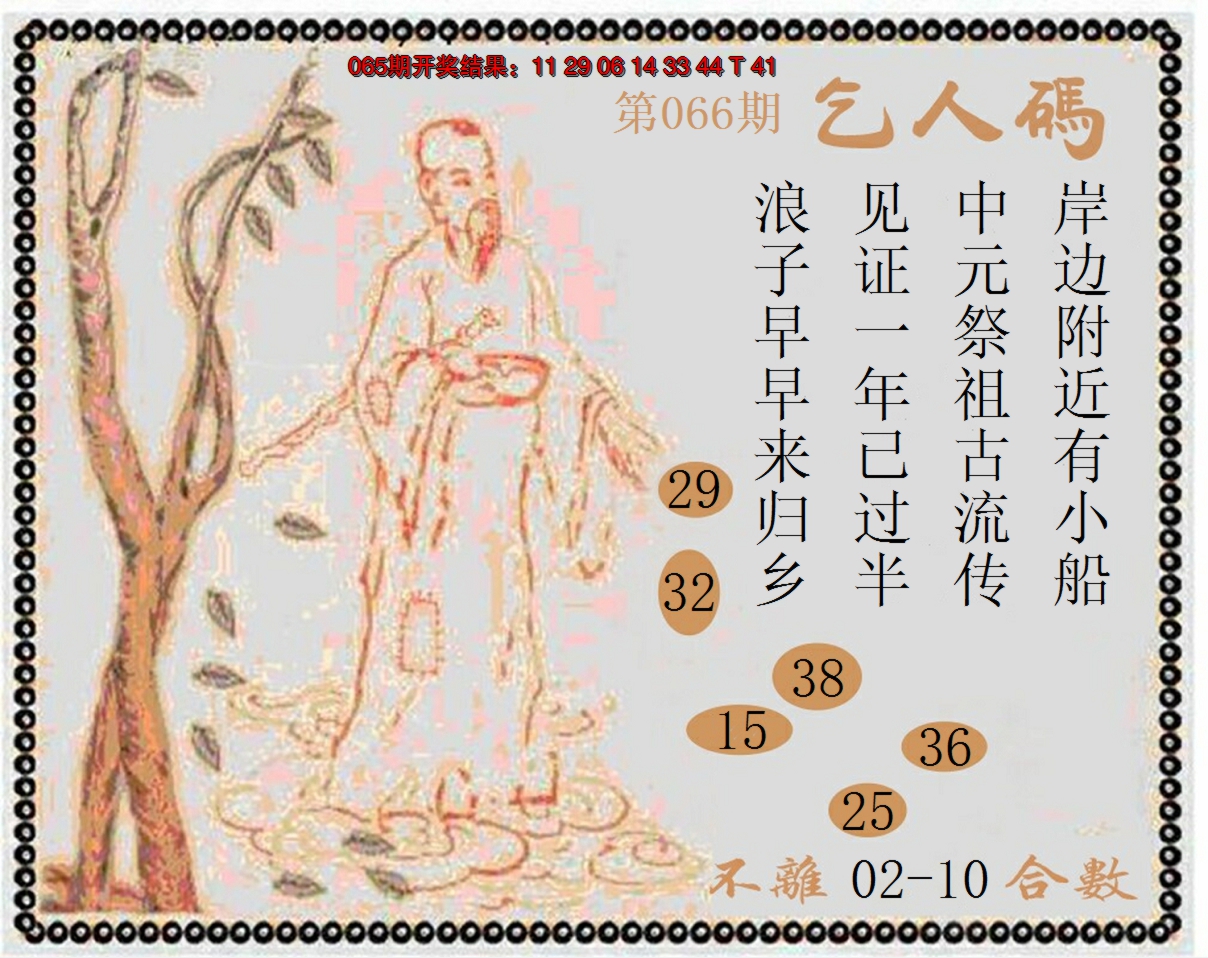 065期开奖结果：11 29 06 14 33 44 T 41
第066期 乞人碼
岸边附近有小船
中元祭祖古流传
见证一年已过半
浪子早早来归乡
29
32
38
15
36
25
不離 02-10 合數